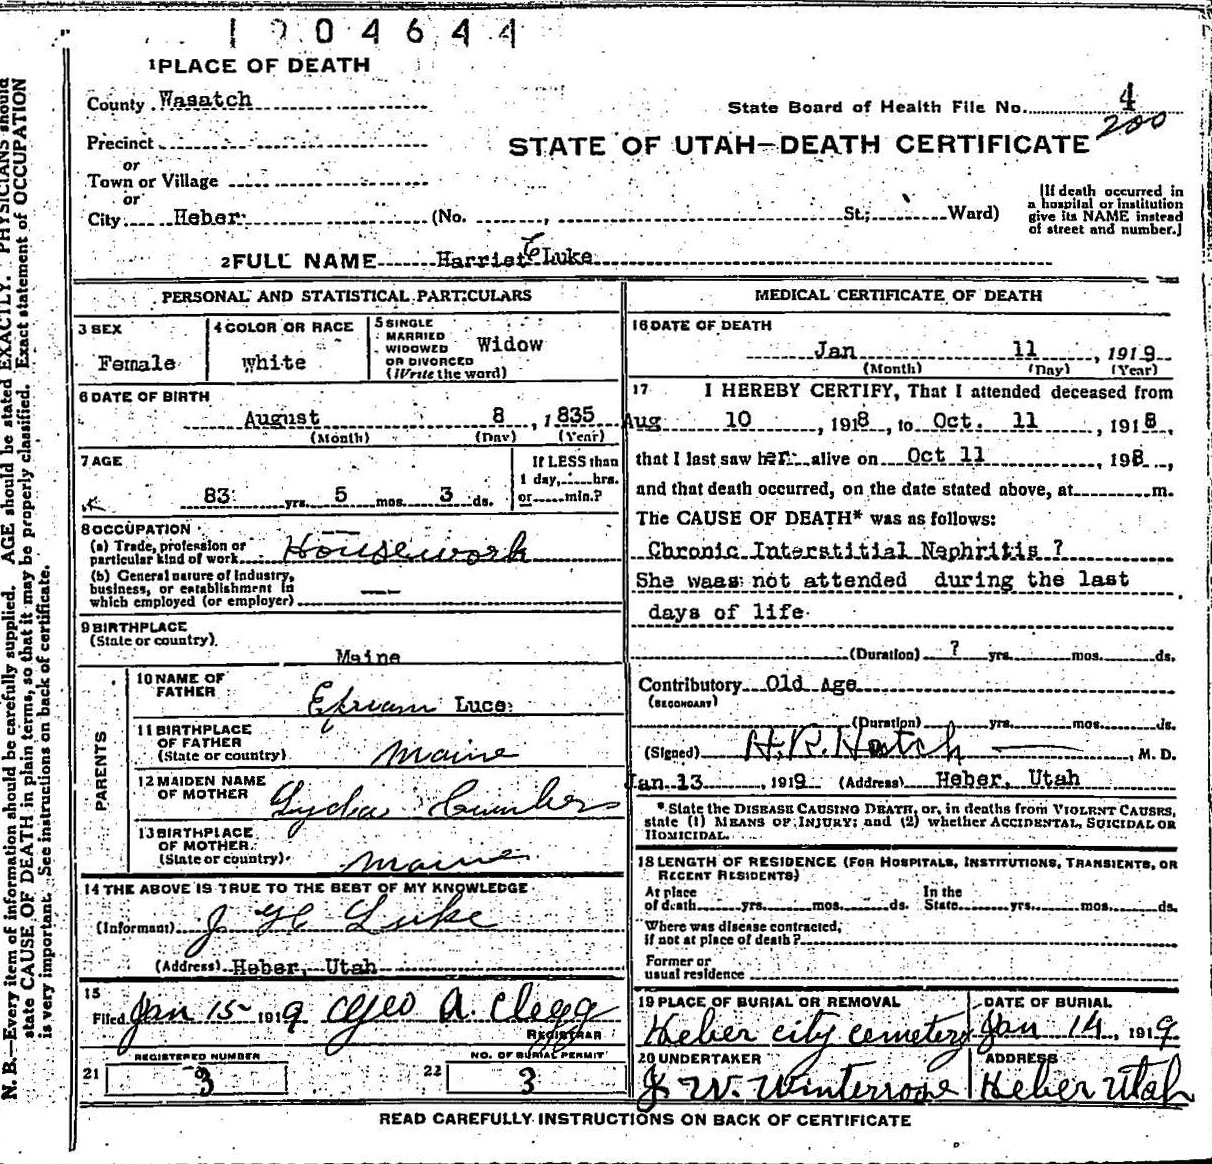 1904644
1 PLACE OF DEATH
County Wasatch
State Board of Health File No. 4
200
Precinct
or
STATE OF UTAH—DEATH CERTIFICATE
Town or Village
or
City Heber (No. , St.; Ward)
[If death occurred in
a hospital or institution
give its NAME instead
of street and number.]
2 FULL NAME Harriet E Luke
PERSONAL AND STATISTICAL PARTICULARS
3 SEX
Female
4 COLOR OR RACE
White
5 SINGLE
MARRIED
WIDOWED
OR DIVORCED
(Write the word)
Widow
6 DATE OF BIRTH
August 8, 1835
(Month) (Day) (Year)
7 AGE
83 yrs. 5 mos. 3 ds.
If LESS than
1 day, hrs.
or min.?
8 OCCUPATION
(a) Trade, profession or
particular kind of work Housework
(b) General nature of Industry,
business, or establishment in
which employed (or employer)
9 BIRTHPLACE
(State or country)
Maine
PARENTS
10 NAME OF
FATHER
Ephriam Luce
11 BIRTHPLACE
OF FATHER
(State or country)
Maine
12 MAIDEN NAME
OF MOTHER
Lydia
13 BIRTHPLACE
OF MOTHER
(State or country)
Maine
14 THE ABOVE IS TRUE TO THE BEST OF MY KNOWLEDGE
(Informant) J H Luke
(Address) Heber, Utah
15
Filed Jan 15 1919 Geo A. Clegg
REGISTRAR
REGISTERED NUMBER
21 3
NO. OF BURIAL PERMIT
22 3
MEDICAL CERTIFICATE OF DEATH
16 DATE OF DEATH
Jan 11, 1919
(Month) (Day) (Year)
17 I HEREBY CERTIFY, That I attended deceased from
Aug 10, 1918, to Oct. 11, 1918,
that I last saw her alive on Oct 11, 198,
and that death occurred, on the date stated above, at m.
The CAUSE OF DEATH* was as follows:
Chronic Interstitial Nephritis ?
She waas not attended during the last
days of life
(Duration) ? yrs. mos. ds.
Contributory Old Age
(SECONDARY)
(Duration) yrs. mos. ds.
(Signed) H.R. Hatch, M. D.
Jan 13, 1919 (Address) Heber, Utah
*State the DISEASE CAUSING DEATH, or, in deaths from VIOLENT CAUSES,
state (1) MEANS OF INJURY; and (2) whether ACCIDENTAL, SUICIDAL OR
HOMICIDAL.
18 LENGTH OF RESIDENCE (FOR HOSPITALS, INSTITUTIONS, TRANSIENTS, OR
RECENT RESIDENTS)
At place In the
of death yrs. mos. ds. State yrs. mos. ds.
Where was disease contracted,
if not at place of death?
Former or
usual residence
19 PLACE OF BURIAL OR REMOVAL
Heber city cemetery
DATE OF BURIAL
Jan 14, 1919
20 UNDERTAKER
J W. Winterrose
ADDRESS
Heber Utah
READ CAREFULLY INSTRUCTIONS ON BACK OF CERTIFICATE
N. B.—Every item of information should be carefully supplied. AGE should be stated EXACTLY. PHYSICIANS should
state CAUSE OF DEATH in plain terms, so that it may be properly classified. Exact statement of OCCUPATION
is very important. See instructions on back of certificate.